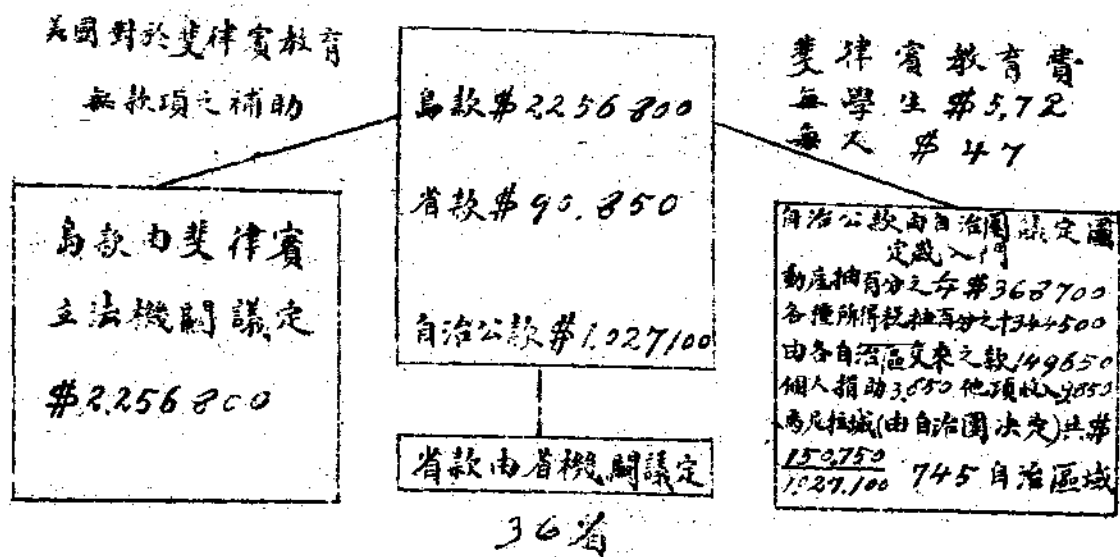 美國對於斐律賓教育
無款項之補助
島款$2,256,800
省款$90,850
自治公款$1,027,100
斐律賓教育費
每學生$5,72
每人 $47
島款由斐律賓
立法機關議定
$2,256,800
省款由省機關議定
36省
自治公款由自治團議定
定歲入
動產抽百分之 $368700
各種所得稅抽百分之十344500
由各自治區交來之款149650
個人捐助3,850 他項收入9,850
馬尼拉城(由自治團決定)共$
150,750
1,027,100 745自治區域